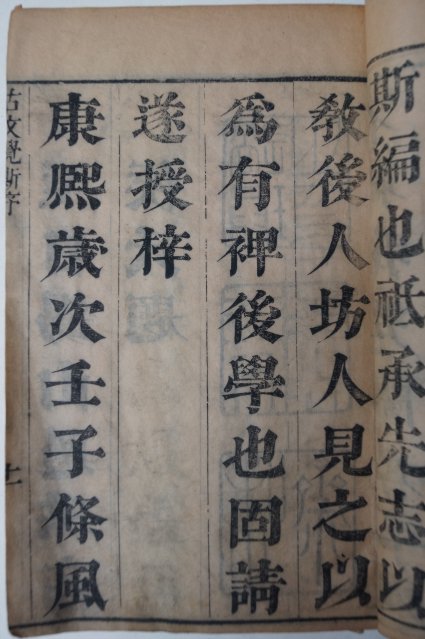 斯編也祗承先志以
教後人坊人見之以
為有裨後學也固請
遂授梓
康熈歲次壬子條風
古文覺斯序